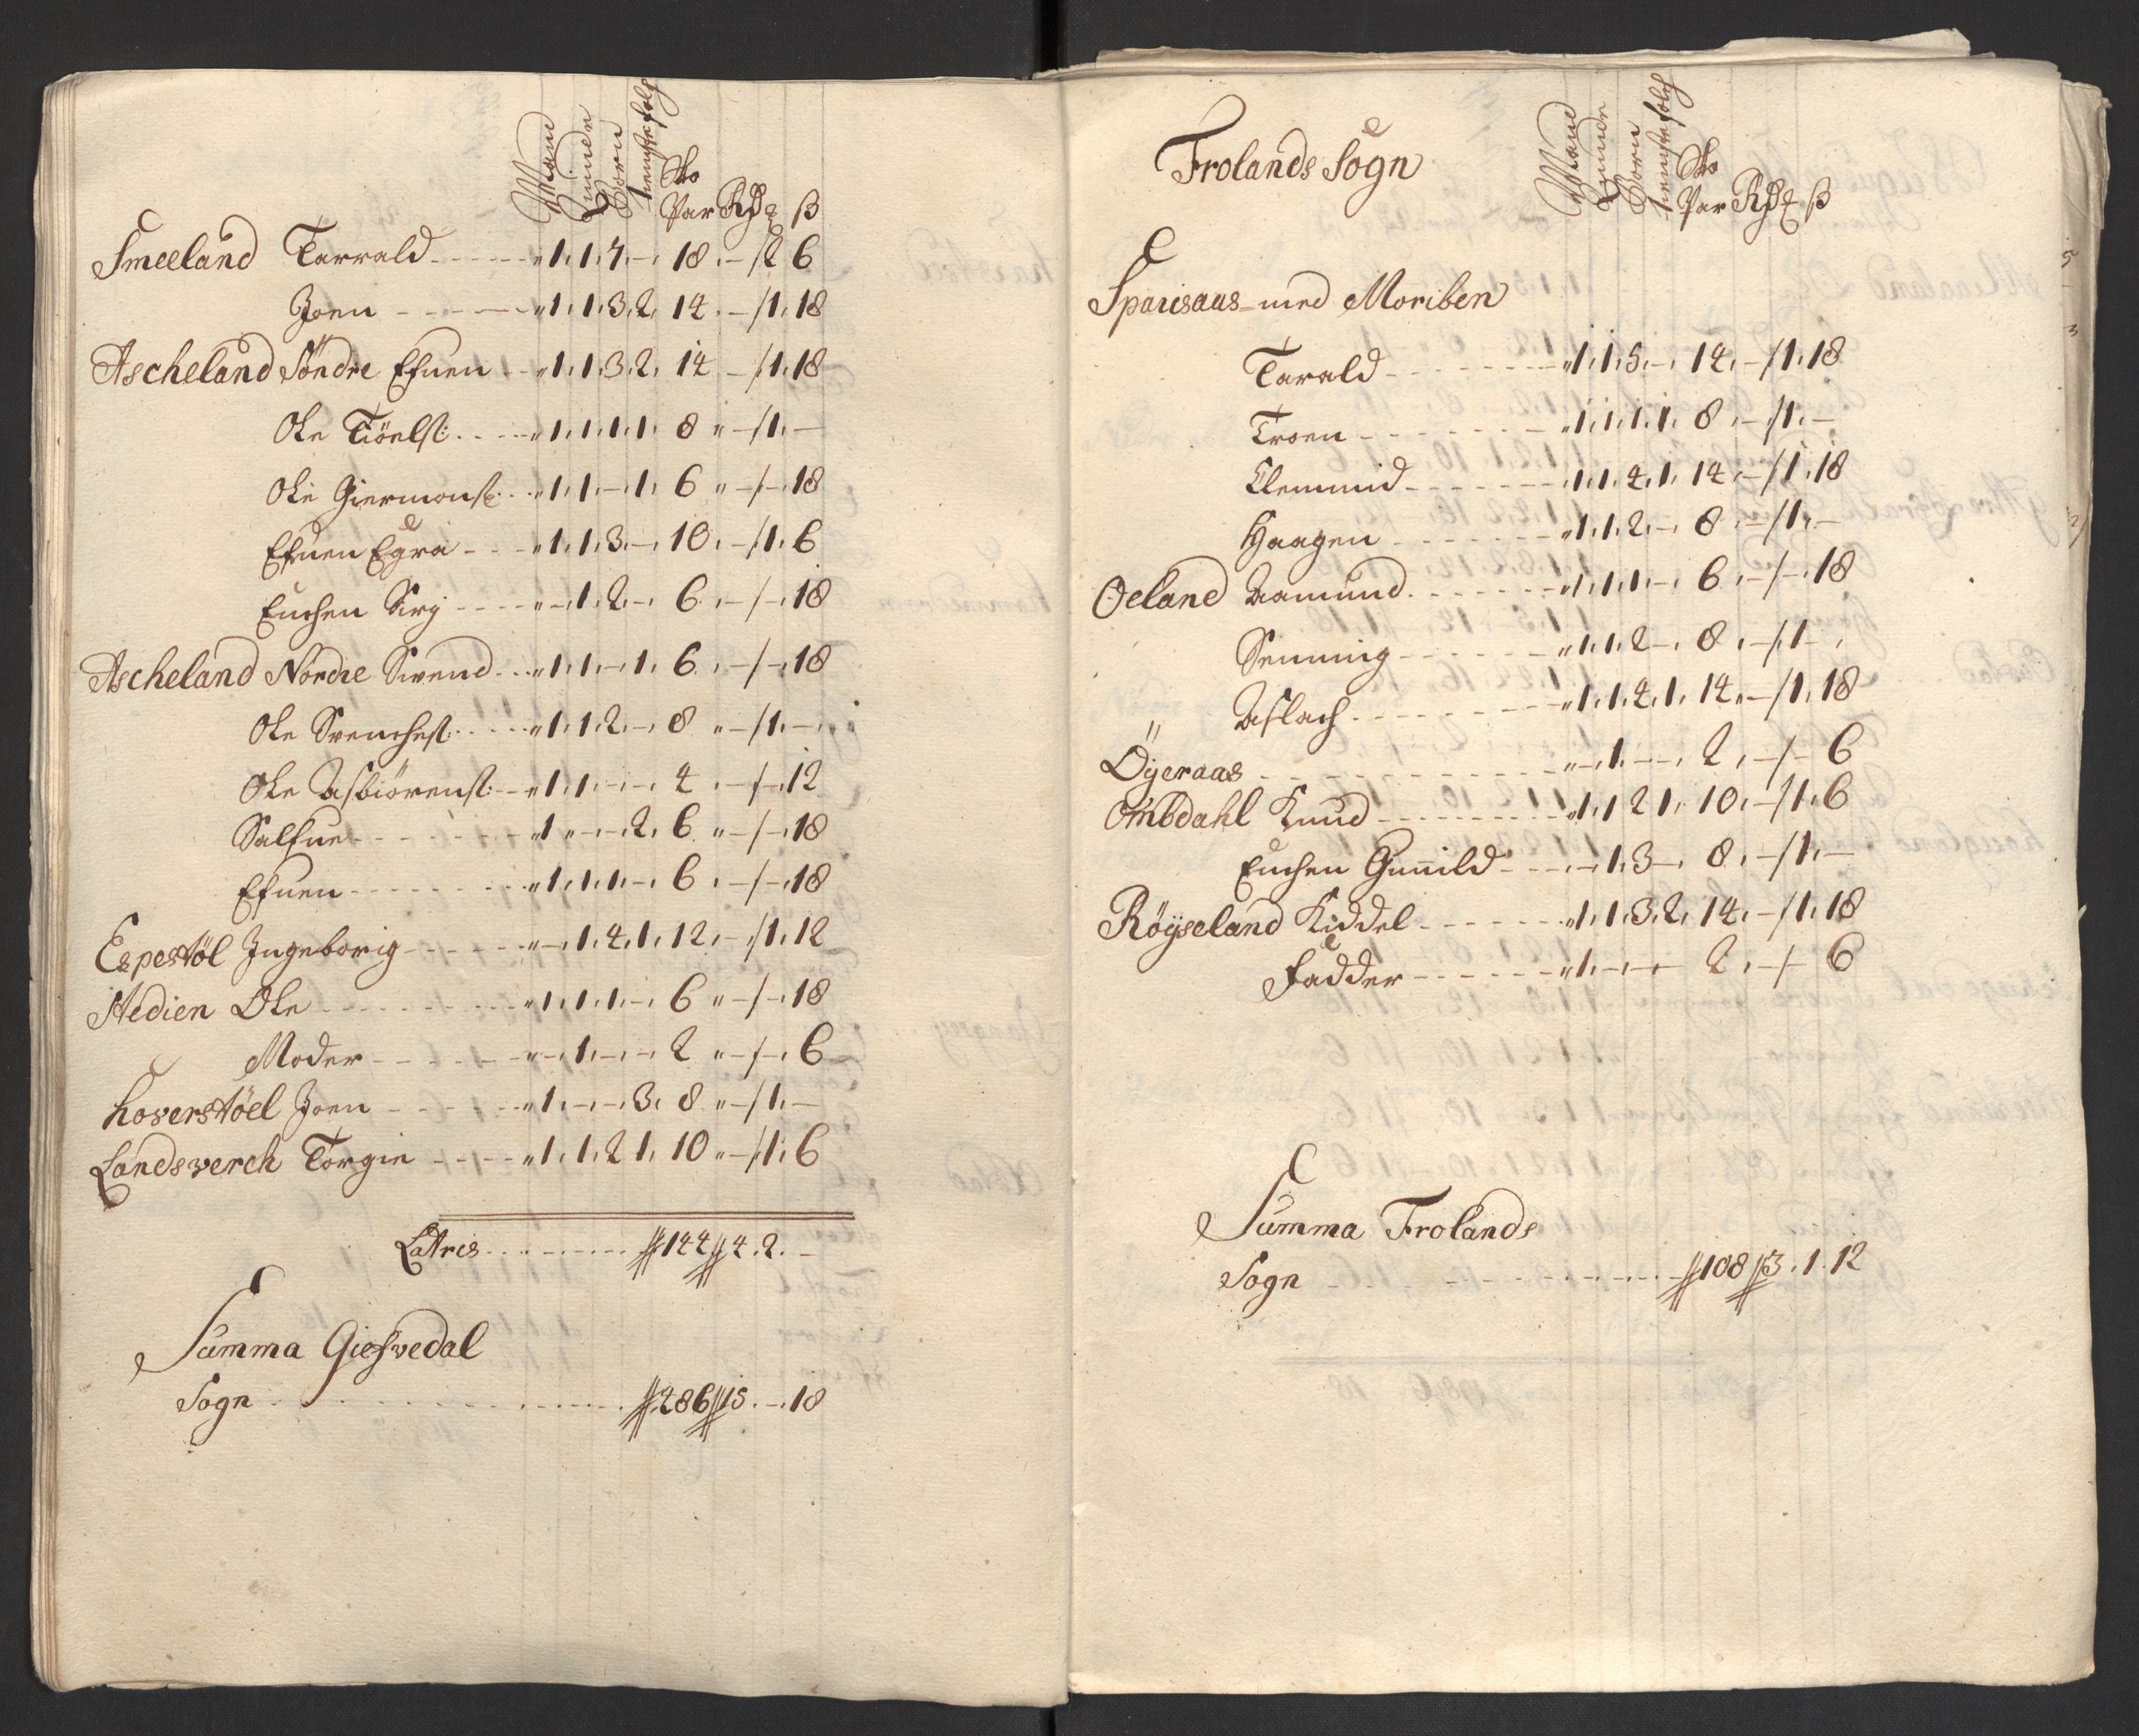 Mand Quinde Børn tienistefolch Sko Par Rdr ₰ ß
Smeeland Tarrald - - - - - " 1. 1. 7. - . 18 . - /2 6
Joen - - - - " 1. 1. 3. 2. 14 . - /1. 18
Ascheland Söndre Efuen - - " 1. 1. 3. 2. 14 - /1. 18
Ole Tiöelss: - - - " 1. 1. 1. 1. 8 " - /1. -
Ole Giermonss: - - " 1. 1. - . 1. 6 " - / - . 18
Efuen Egra - - - " 1. 1. 3. - . 10 . - /1. 6
Enchen Siri - - - - " - . 1. 2. - . 6 . - / - . 18
Ascheland Nordre Svend - - " 1. 1. - . 1. 6 . - / - . 18
Ole Svenchess: - - - " 1. 1. 2. - . 8 " - /1. -
Ole Asbiörenss: - - " 1. 1. - . - . 4 . - / - . 12
Salfue - - - - - - " 1 " - . - . 2. 6 " - / - . 18
Efuen - - - - - - - " 1. 1. 1. - . 6 . - / - . 18
Espestöl Ingeborig - - - - - " - . 1. 4. 1. 12 . - /1. 12
Stedien Ole - - - - - - - " 1. 1. 1. - . 6 " - / - . 18
Moder - - - - - - " - . 1. - . - . 2 " - / - . 6
Hoverstöel Joen - - - - - " 1. - . - . 3. 8 " - /1. -
Landsverch Torgie - - - - " 1. 1. 2 1. 10 " - /1. 6
Latris - - - - - - - 144 4 . 2 . -
Summa Giesvedal
Sogn - - - - - - - - - - - 486 15 . - . 18
Frolands Sogn
Mand Quinde Børn tienistefolch Sko Par Rdr ₰ ß
Spaisaas med Moriben
Tarald - - - - - - - " 1. 1. 5. - . 14 . - /1. 18
Troen - - - - - - - " 1. 1. 1. 1. 8 . - /1. -
Clemmid - - - - - - " 1. 1. 4. 1. 14 . - /1. 18
Haagen - - - - - - - " 1. 1. 2. - . 8 . - /1. -
Oeland Aamund - - - - - - " 1. 1. 1. - . 6 . - / - . 18
Senning - - - - - - " 1. 1. 2 - . 8 . - /1 - .
Aslach - - - - - - - - " 1. 1. 4. 1. 14 " - /1. 18
Öÿeraas - - - - - - - - - - - " - . 1. - . - . 2 . - / - 6
Ombdahl Knud - - - - - - - - " 1. 1 2 1. 10 . - /1. 6
Enchen Gunild - - - . - . 1. 3 - . 8 . - /1. -
Röÿseland Kiddel - - - - - - " 1. 1. 3. 2. 14 . - /1. 18
Fadder - - - - - - " 1. - . - . - 2 . - / - 6
Summa Frolands
Sogn - - - - - - - - - - 108 3 . 1 . 12